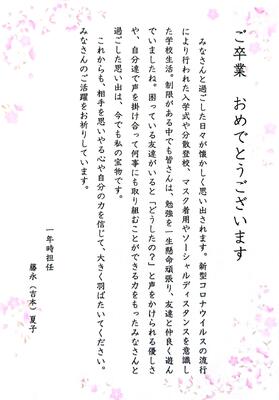 ご卒業　おめでとうございます
みなさんと過ごした日々が懐かしく思い出されます。新型コロナウイルスの流行
により行われた入学式や分散登校、マスク着用やソーシャルディスタンスを意識し
た学校生活。制限がある中でも皆さんは、勉強を一生懸命頑張り、友達と仲良く遊ん
でいましたね。困っている友達がいると「どうしたの？」と声をかけられる優しさ
や、自分達で声を掛け合って何事にも取り組むことができる力をもったみなさんと
過ごした思い出は、今でも私の宝物です。
これからも、相手を思いやる心や自分の力を信じて、大きく羽ばたいてください。
みなさんのご活躍をお祈りしています。
一年時担任
藤永（吉本）夏子